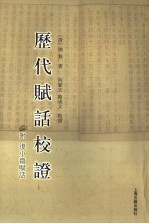 [清] 浦銑 著 何新文 路成文 校證
歷代賦話校證
附 復小齋賦話
上海古籍出版社